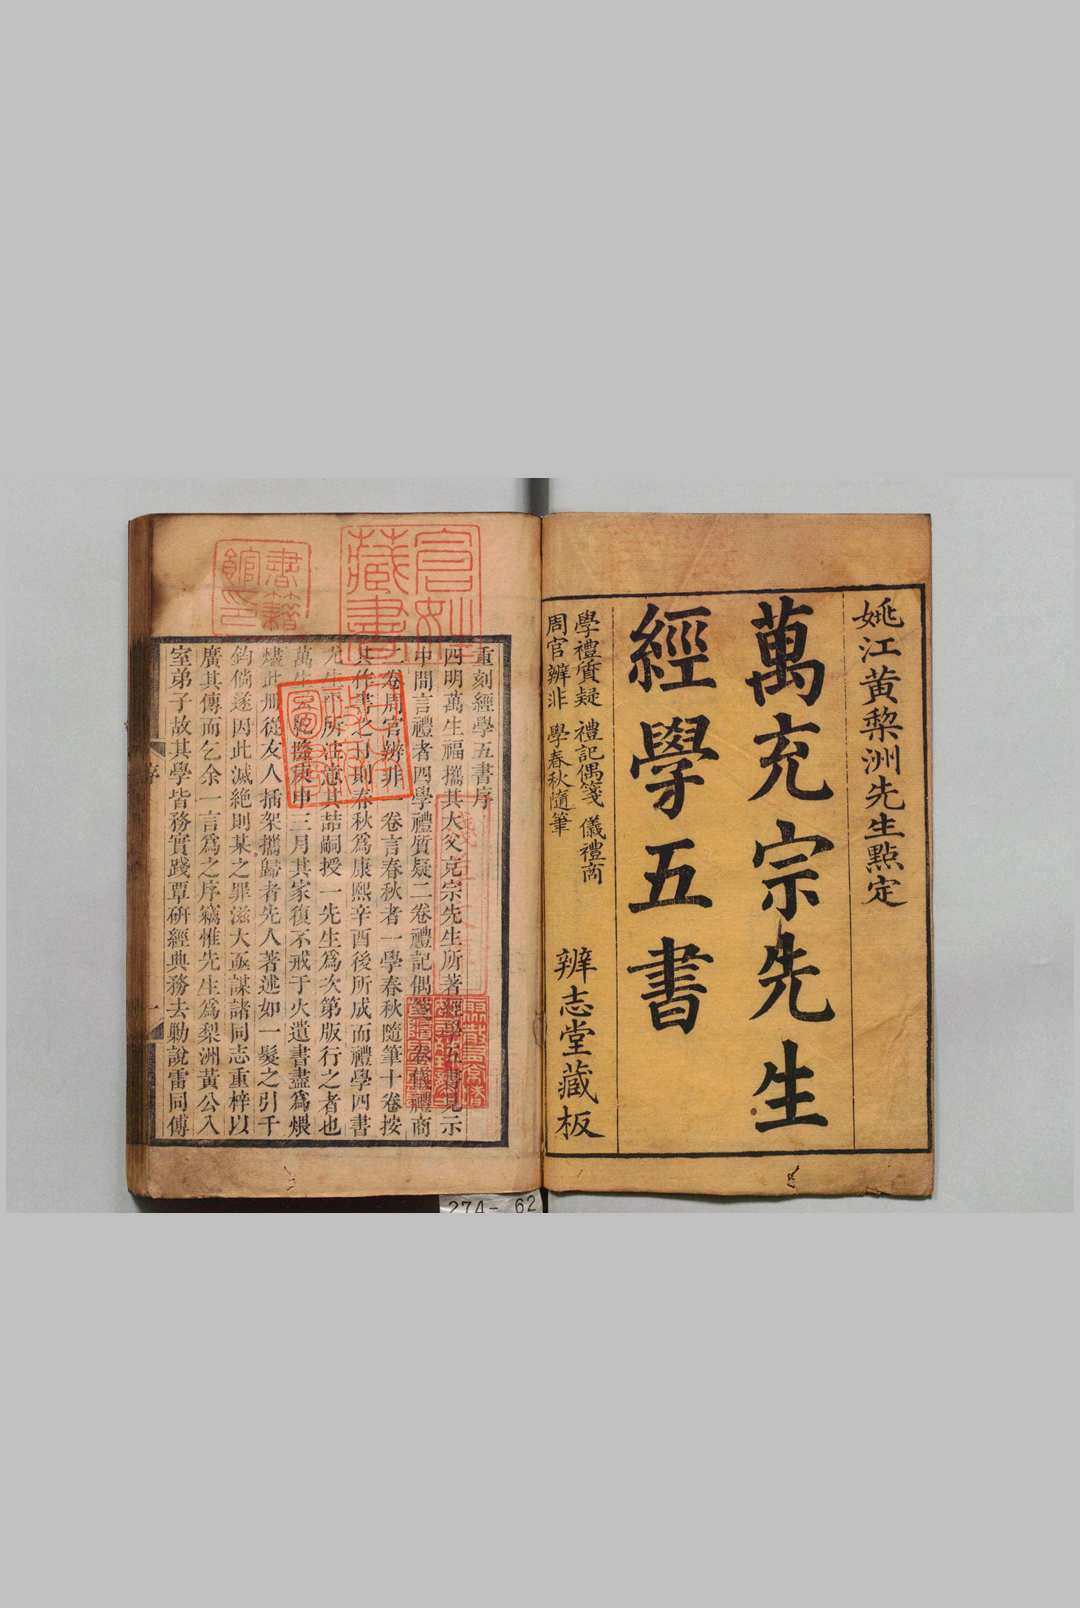 姚江黃棃洲先生點定
萬充宗先生
經學五書
學禮質疑 禮記偶箋 儀禮商
周官辨非 學春秋隨筆
辨志堂藏板
重刻經學五書序
四明萬生福攜其大父充宗先生所著經學五書見示
中間言禮者四學禮質疑二卷禮記偶箋三卷儀禮商
二卷周官辨非一卷言春秋者一學春秋隨筆十卷按
其作書之 則春秋爲康熙辛酉後所成而禮學四書
先生 所注意其喆嗣授一先生爲次第版行之者也
萬 乾隆庚申三月其家復不戒于火遺書盡爲煨
燼此册從友人插架攜歸者先人著述如一髮之引千
鈞倘遂因此滅絕則某之罪滋大亟謀諸同志重梓以
廣其傳而乞余一言爲之序竊惟先生爲梨洲黃公入
室弟子故其學皆務實踐覃研經典務去勦說雷同傅
序
一
藏書
書籍
館印
274- 62